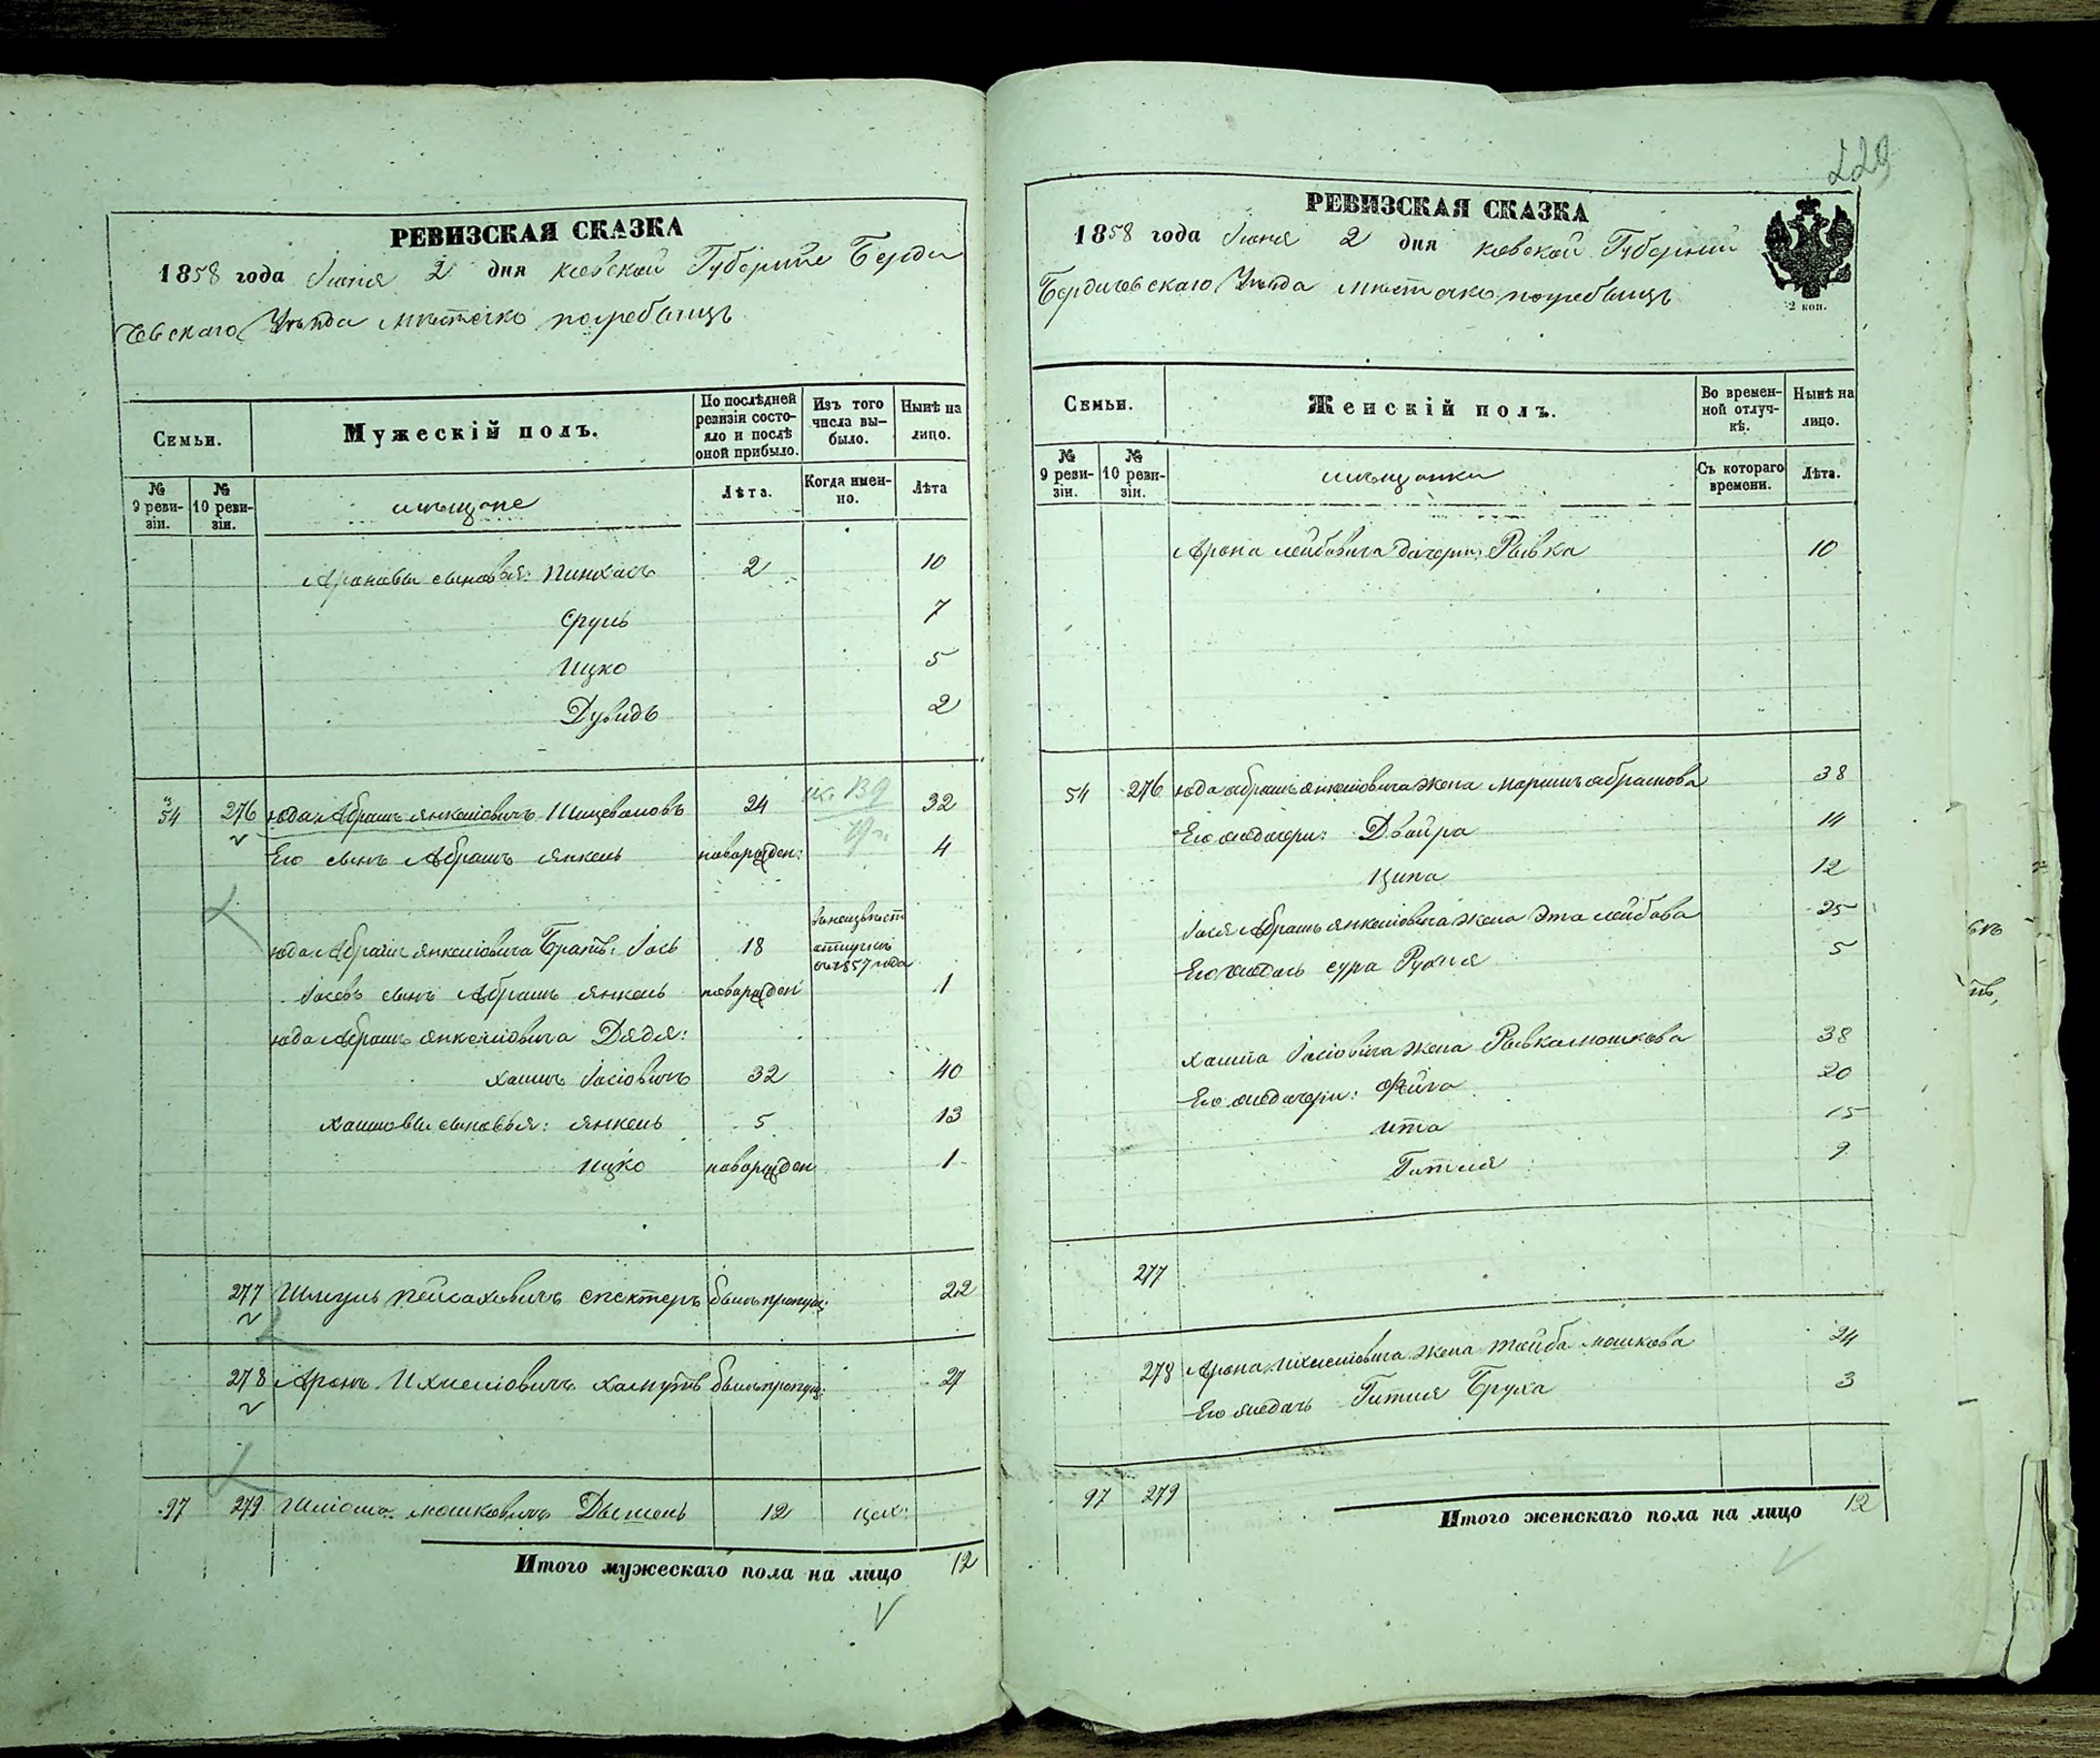 РЕВИЗСКАЯ СКАЗКА
1858 года Іюня 2 дня Кіевской Губерніи Берди
чевскаго Уѣзда мѣстечко погребыщъ
Семьи.
Мужескій полъ.
По послѣдней ревизіи состояло и послѣ оной прибыло.
Изъ того числа выбыло.
Нынѣ на лицо.
№ 9 ревизіи.
№ 10 ревизіи.
мѣщане
Лѣта.
Когда именно.
Лѣта
Ароновы сыновья: Пинхасъ 2 10
Сруль 7
Ицко 5
Дувидъ 2
54 276 Юда Абрамъ Янкеліовичъ 24 32
Его сынъ Абрамъ Янкель новорожден: 4
Юда Абрамъ Янкеліовича Братъ: Іось 18
отлучкѣ
съ 1857 года
Іосевъ сынъ Абрамъ Янкель новорожден 1
Юда Абрамъ Янкеліовича Дядя:
Хаимъ Іосіовичъ 32 40
Хаимовы сыновья: Янкель 5 13
Ицко новорожден 1
277 Шмуль Пейсаховичъ Спектеръ былъ пропущ: 22
278 Аронъ Ихиеліовичъ Хомутъ былъ пропущ: 27
97 279 Шліома Мошковичъ 12
Итого мужескаго пола на лицо 12
229
РЕВИЗСКАЯ СКАЗКА
1858 года Іюня 2 дня Кіевской Губерніи
Бердичевскаго Уѣзда мѣстечко погребыщъ
2 коп.
Семьи.
Женскій полъ.
Во временной отлучкѣ.
Нынѣ на лицо.
№ 9 ревизіи.
№ 10 ревизіи.
мѣщанки
Съ котораго времени.
Лѣта.
Арона Лейбовича дочерь: Рывка 10
54 276 Юда Абрамъ Янкеліовича жена Маріимъ Абрамова 38
Его же дочери: Двойра 14
Ципа 12
Іося Абрамъ Янкеліовича жена Эта Лейбова 25
Его же дочь Сура Рухля 5
Хаима Іосіовича жена Рывка Мошкова 38
Его же дочери: Фейга 20
Ита 15
Гитля 9
277
278 Арона Ихиеліовича жена Тайба Мошкова 24
Его же дочь Гитля Бруха 3
97 279
Итого женскаго пола на лицо 12